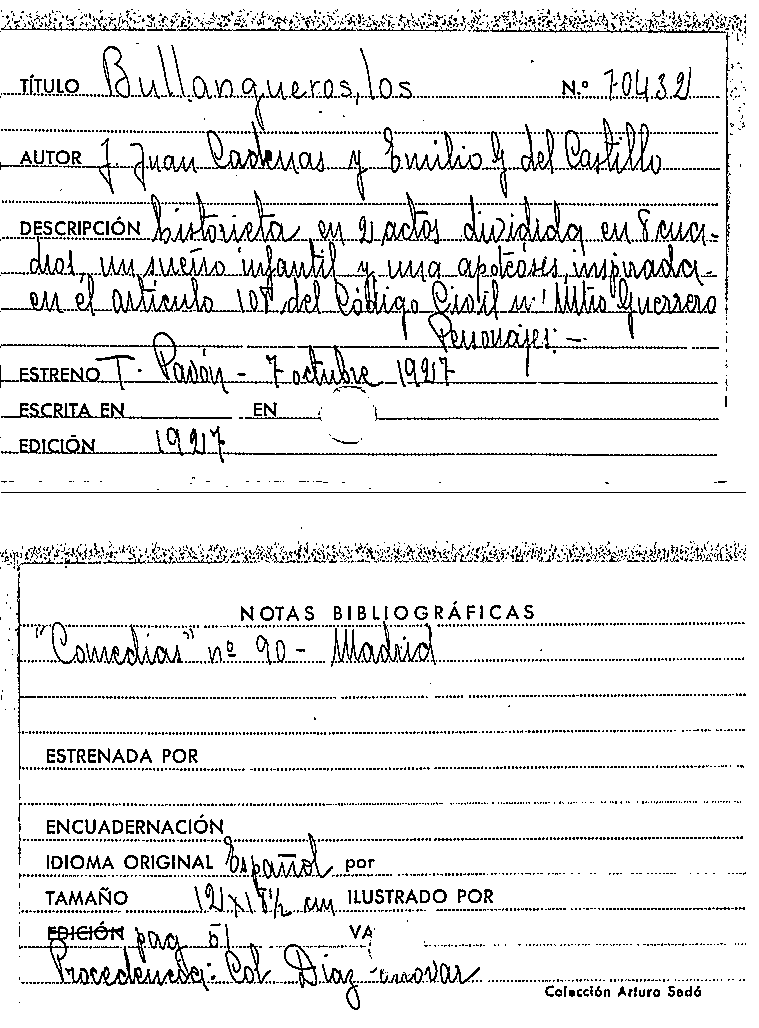 TÍTULO Bullangueros, los N.º 70432
AUTOR J. Juan Cadenas y Emilio G del Castillo
DESCRIPCIÓN historieta en 2 actos dividida en 8 cua-
dros, un sueño infantil y una apoteosis, inspirada
en el artículo 108 del Código Civil Guerrero
Personajes: -
ESTRENO T. Pavón - 7 octubre 1927
ESCRITA EN EN
EDICIÓN 1927
NOTAS BIBLIOGRÁFICAS
"Comedias" nº 90 - Madrid
ESTRENADA POR
ENCUADERNACIÓN
IDIOMA ORIGINAL Español por
TAMAÑO 12 x 18½ cm ILUSTRADO POR
EDICIÓN pag 51 VA
Procedencia: Col. Díaz
Colección Arturo Sedó